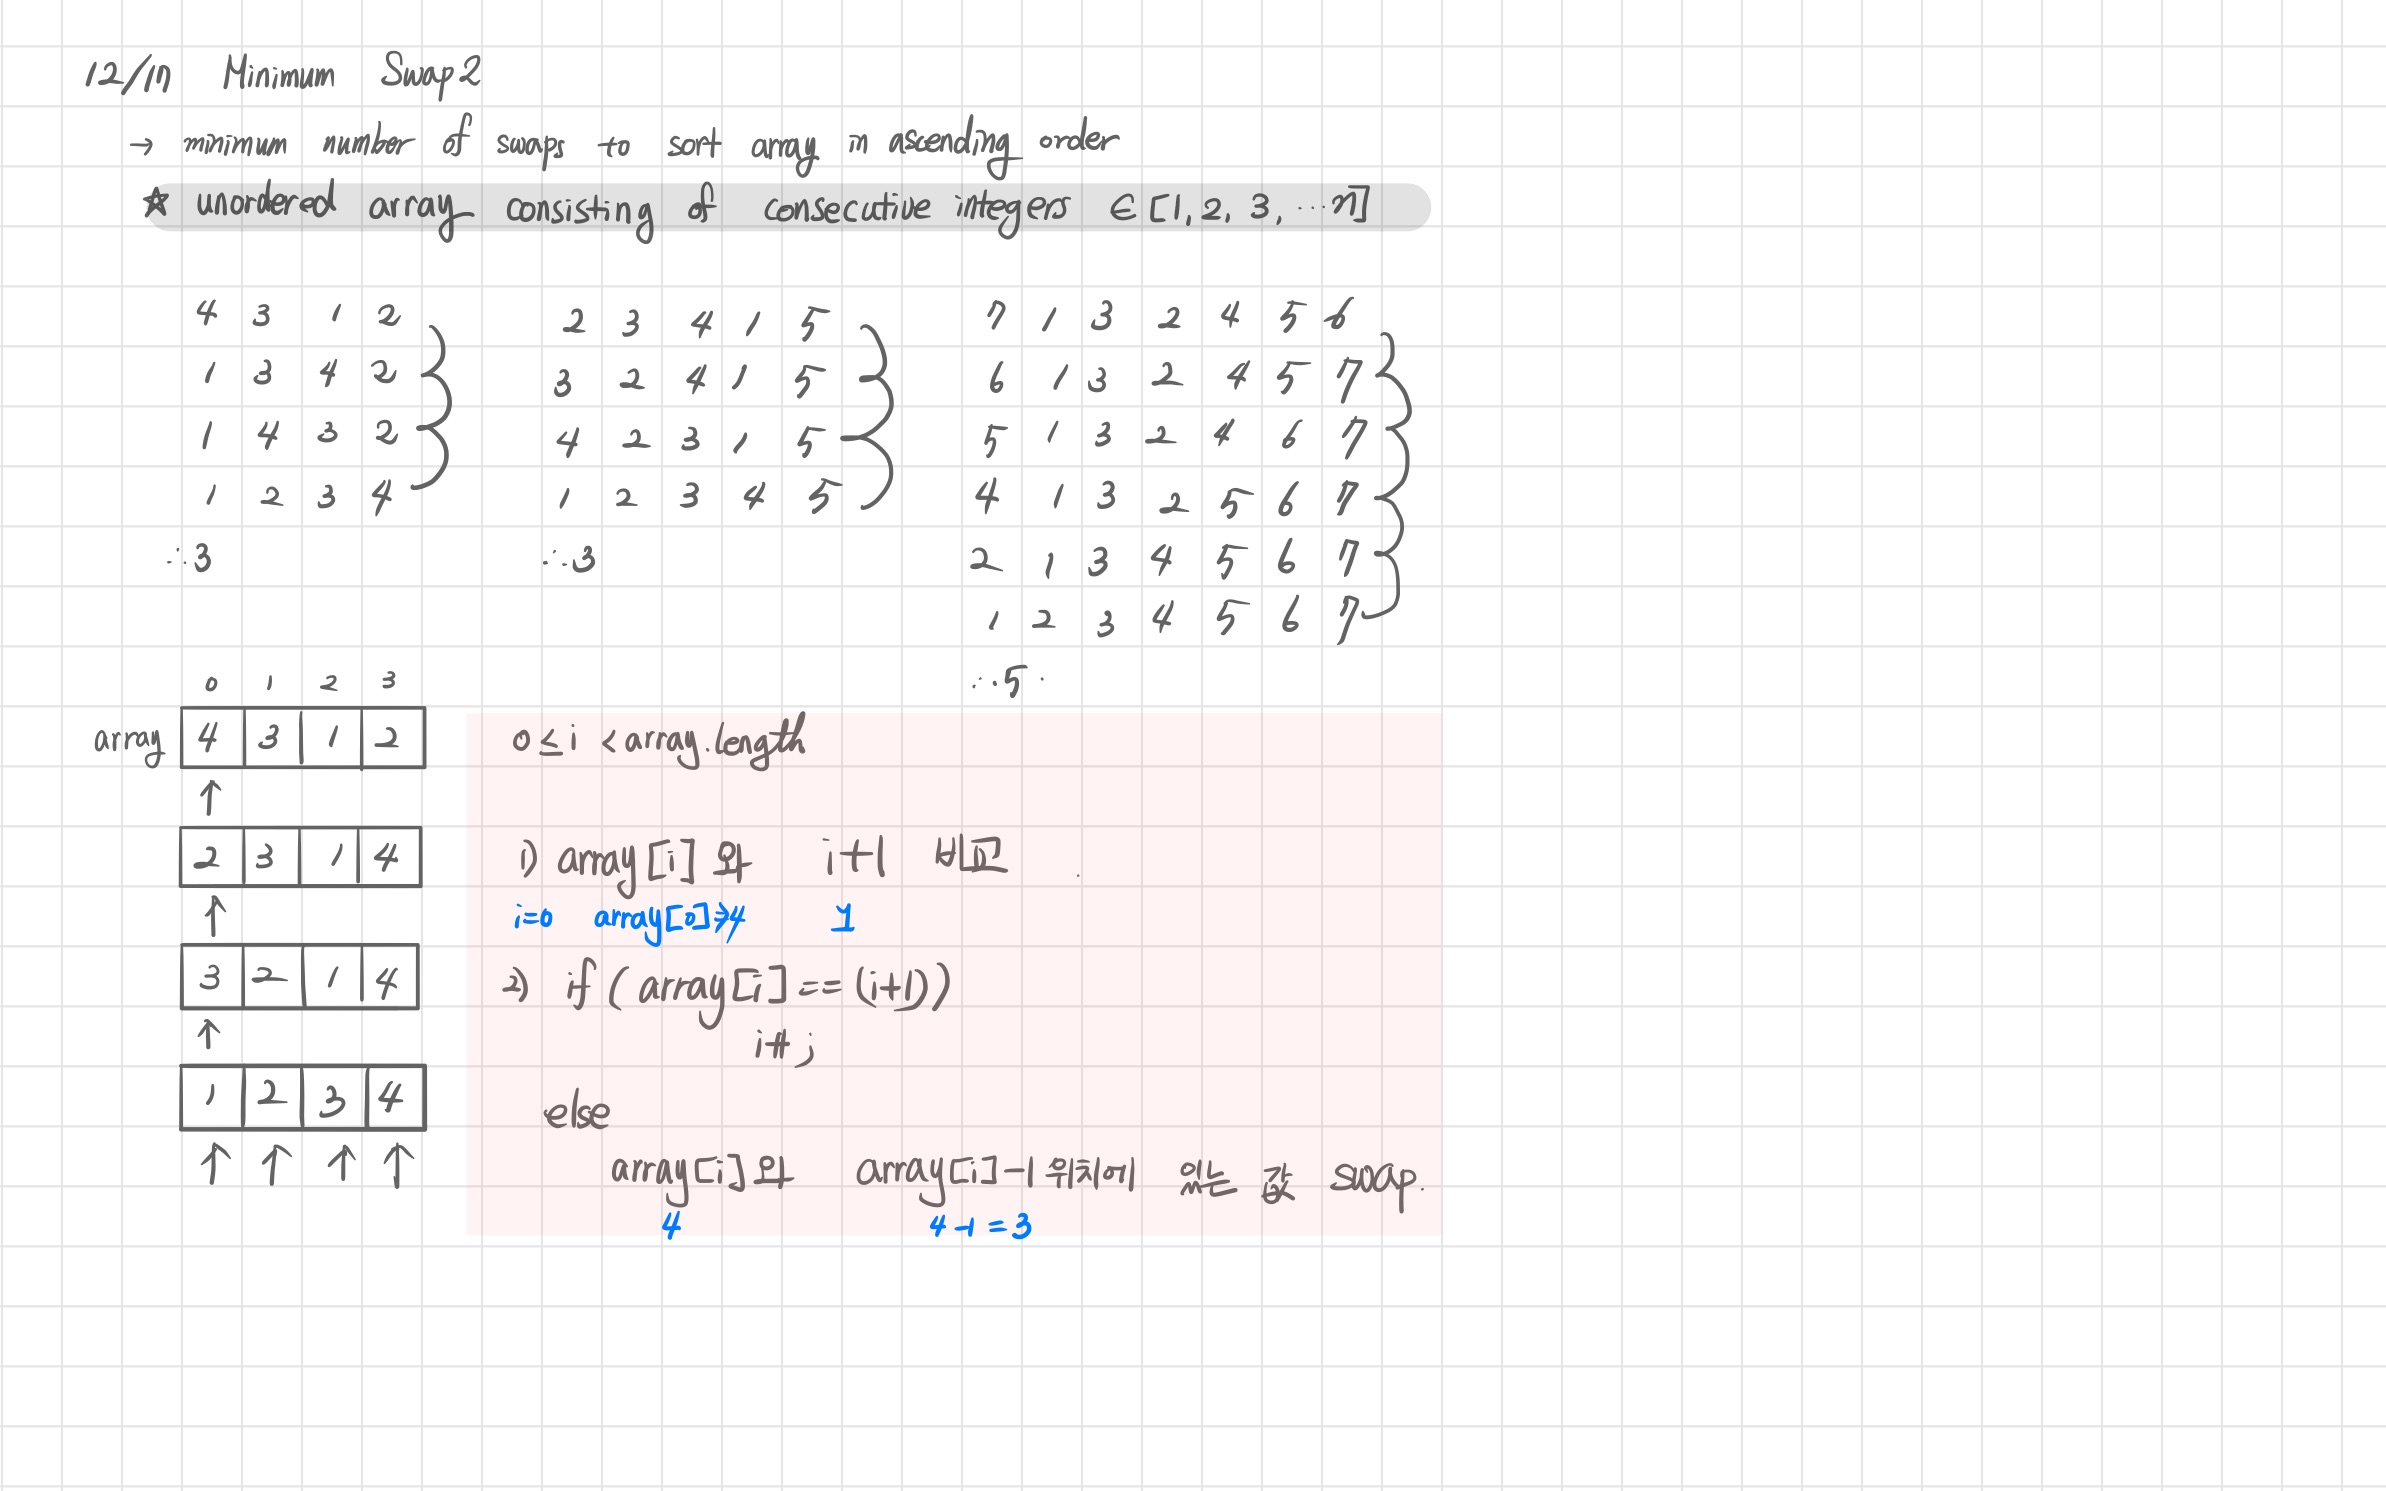 12/17 Minimum Swap2
→ minimum number of swaps to sort array in ascending order
☆ unordered array consisting of consecutive integers ∈ [1, 2, 3, ... n]
4 3 1 2
1 3 4 2
1 4 3 2
1 2 3 4
∴3
2 3 4 1 5
3 2 4 1 5
4 2 3 1 5
1 2 3 4 5
∴3
7 1 3 2 4 5 6
6 1 3 2 4 5 7
5 1 3 2 4 6 7
4 1 3 2 5 6 7
2 1 3 4 5 6 7
1 2 3 4 5 6 7
∴5
0 1 2 3
array 4 3 1 2
↑
2 3 1 4
↑
3 2 1 4
↑
1 2 3 4
↑ ↑ ↑ ↑
0 ≤ i < array.length
1) array[i] 와 i+1 비교
i=0 array[0]⇒4 1
2) if (array[i] == (i+1))
i++;
else
array[i]와 array[i]-1 위치에 있는 값 swap.
4 4-1=3